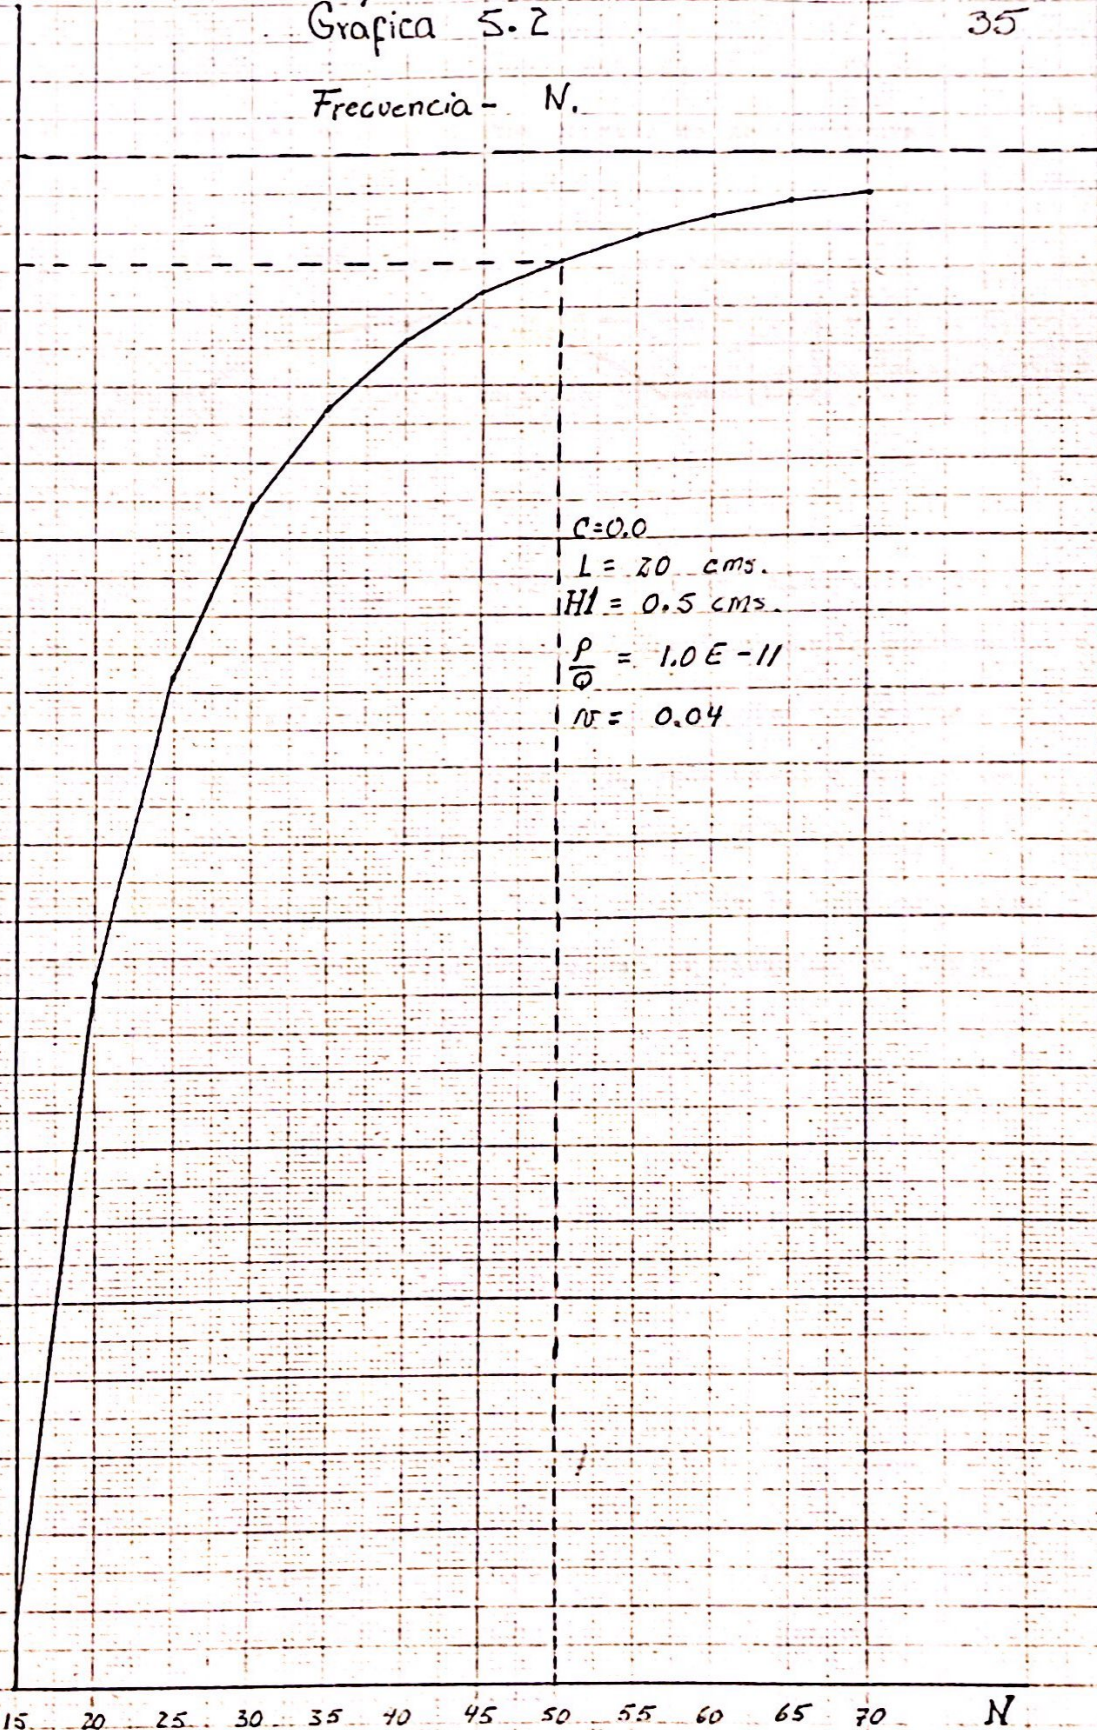 Gráfica 5.2 35
Frecuencia - N.
C=0.0
L = 20 cms.
H1 = 0.5 cms.
P/Q = 1.0 E -11
N = 0.04
15 20 25 30 35 40 45 50 55 60 65 70 N